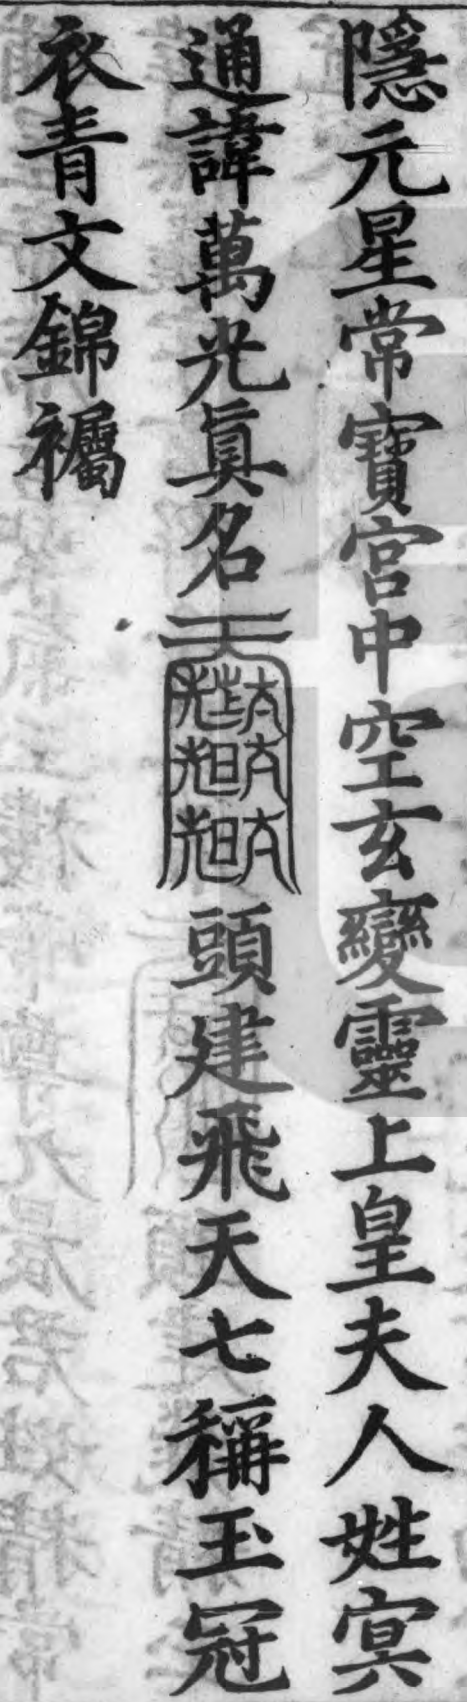 隱元星常寶宮中空玄變靈上皇夫人姓㝠
通諱萬光眞名頭建飛天七稱玉冠
衣青文錦襡